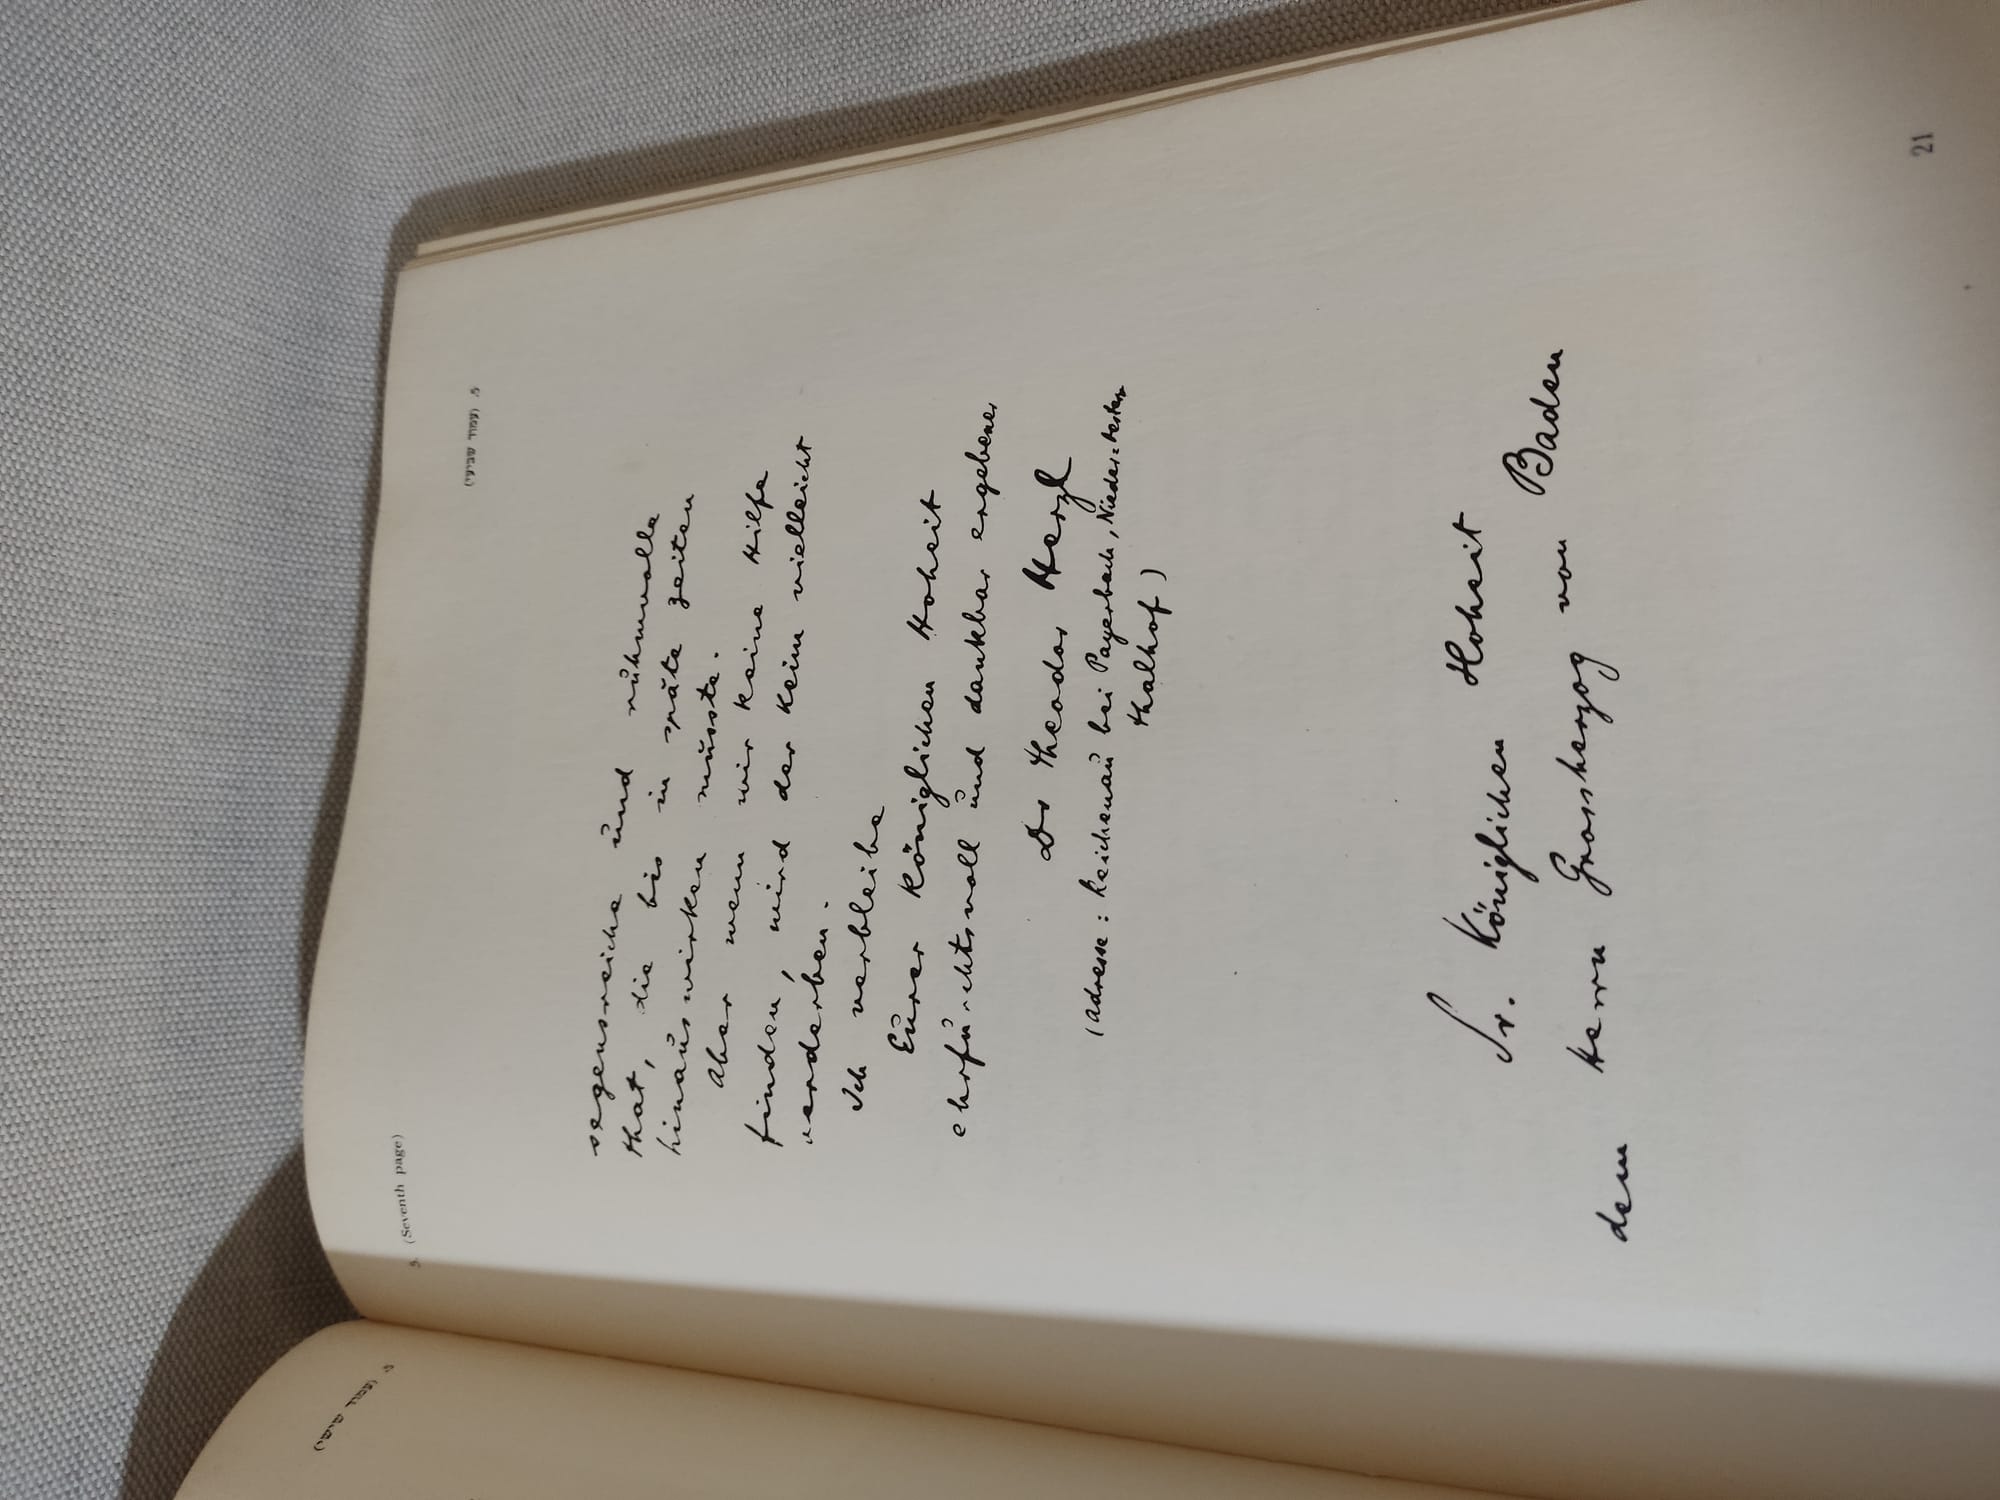 5. (עמוד שישי)
5. (Seventh page)
5. (עמוד שביעי)
segensreiche und ruhmvolle
That, die bis in späte Zeiten
hinauswirken müsste.
Aber wenn wir keine Hilfe
finden, wird der Keim vielleicht
verderben.
Ich verbleibe
Eurer Königlichen Hoheit
ehrfurchtsvoll und dankbar ergebener
Dr Theodor Herzl
(Adresse: Reichenau bei Payerbach, Nieder-Oesterr
Thalhof)
Sr. Königlichen Hoheit
dem Herrn Grossherzog von Baden
21